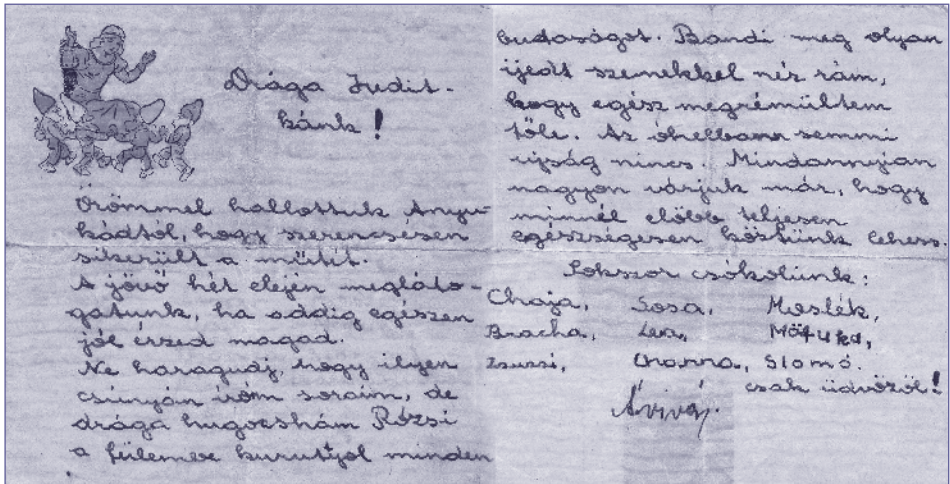 Drága Judit-
kánk!
Örömmel hallottuk Anyu-
kádtól, hogy szerencsésen
sikerült a mütét.
A jövő hét elején megláto-
gatunk, ha addig egészen
jól érzed magad.
Ne haragudj, hogy ilyen
csúnyán írom soraim, de
drága hugocskám Rózsi
a fülembe kurutyol minden
butaságot. Bandi meg olyan
ijedt szemekkel néz rám,
hogy egész megrémültem
tőle. Az óhelban semmi
ujság nincs. Mindannyian
nagyon várjuk már, hogy
minnél előbb teljesen
egészségesen köztünk lehess.
Sokszor csókolünk:
Chaja, Sosa, Moslék,
Bracha, Lea, Mötyka,
Zsuzsi, Channa, Slomó.
csak üdvözöl!
Áviváj.